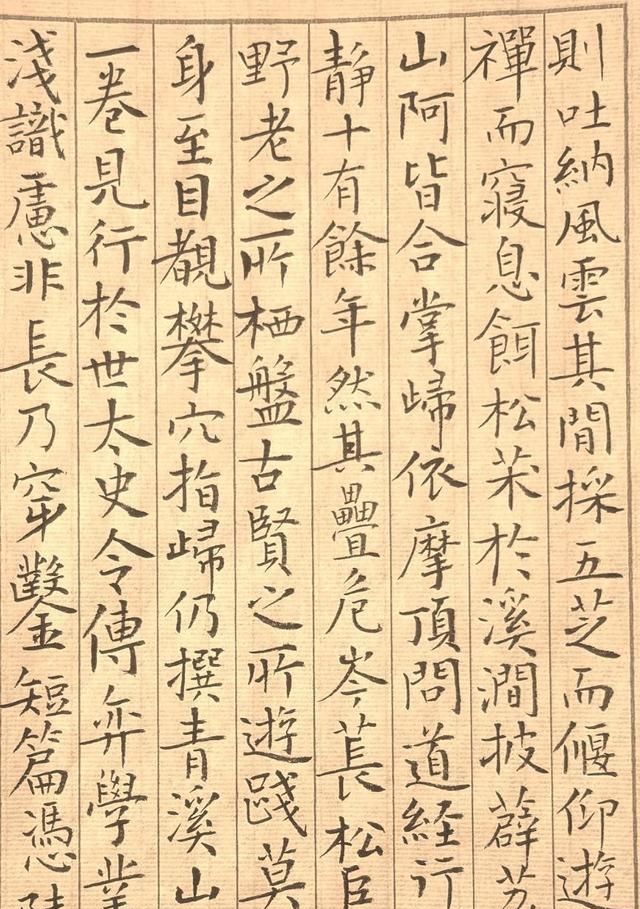 則吐納風雲其間採五芝而偃仰遊
禪而寢息餌松朮於溪澗披薜
山阿皆合掌歸依摩頂問道経行
静十有餘年然其疊危岑萇松
野老之所栖盤古賢之所遊踐莫
身至目覩攀穴指歸仍撰青溪山
一卷見行於世太史令傅弈學業
淺識慮非長乃穿鑿短篇憑